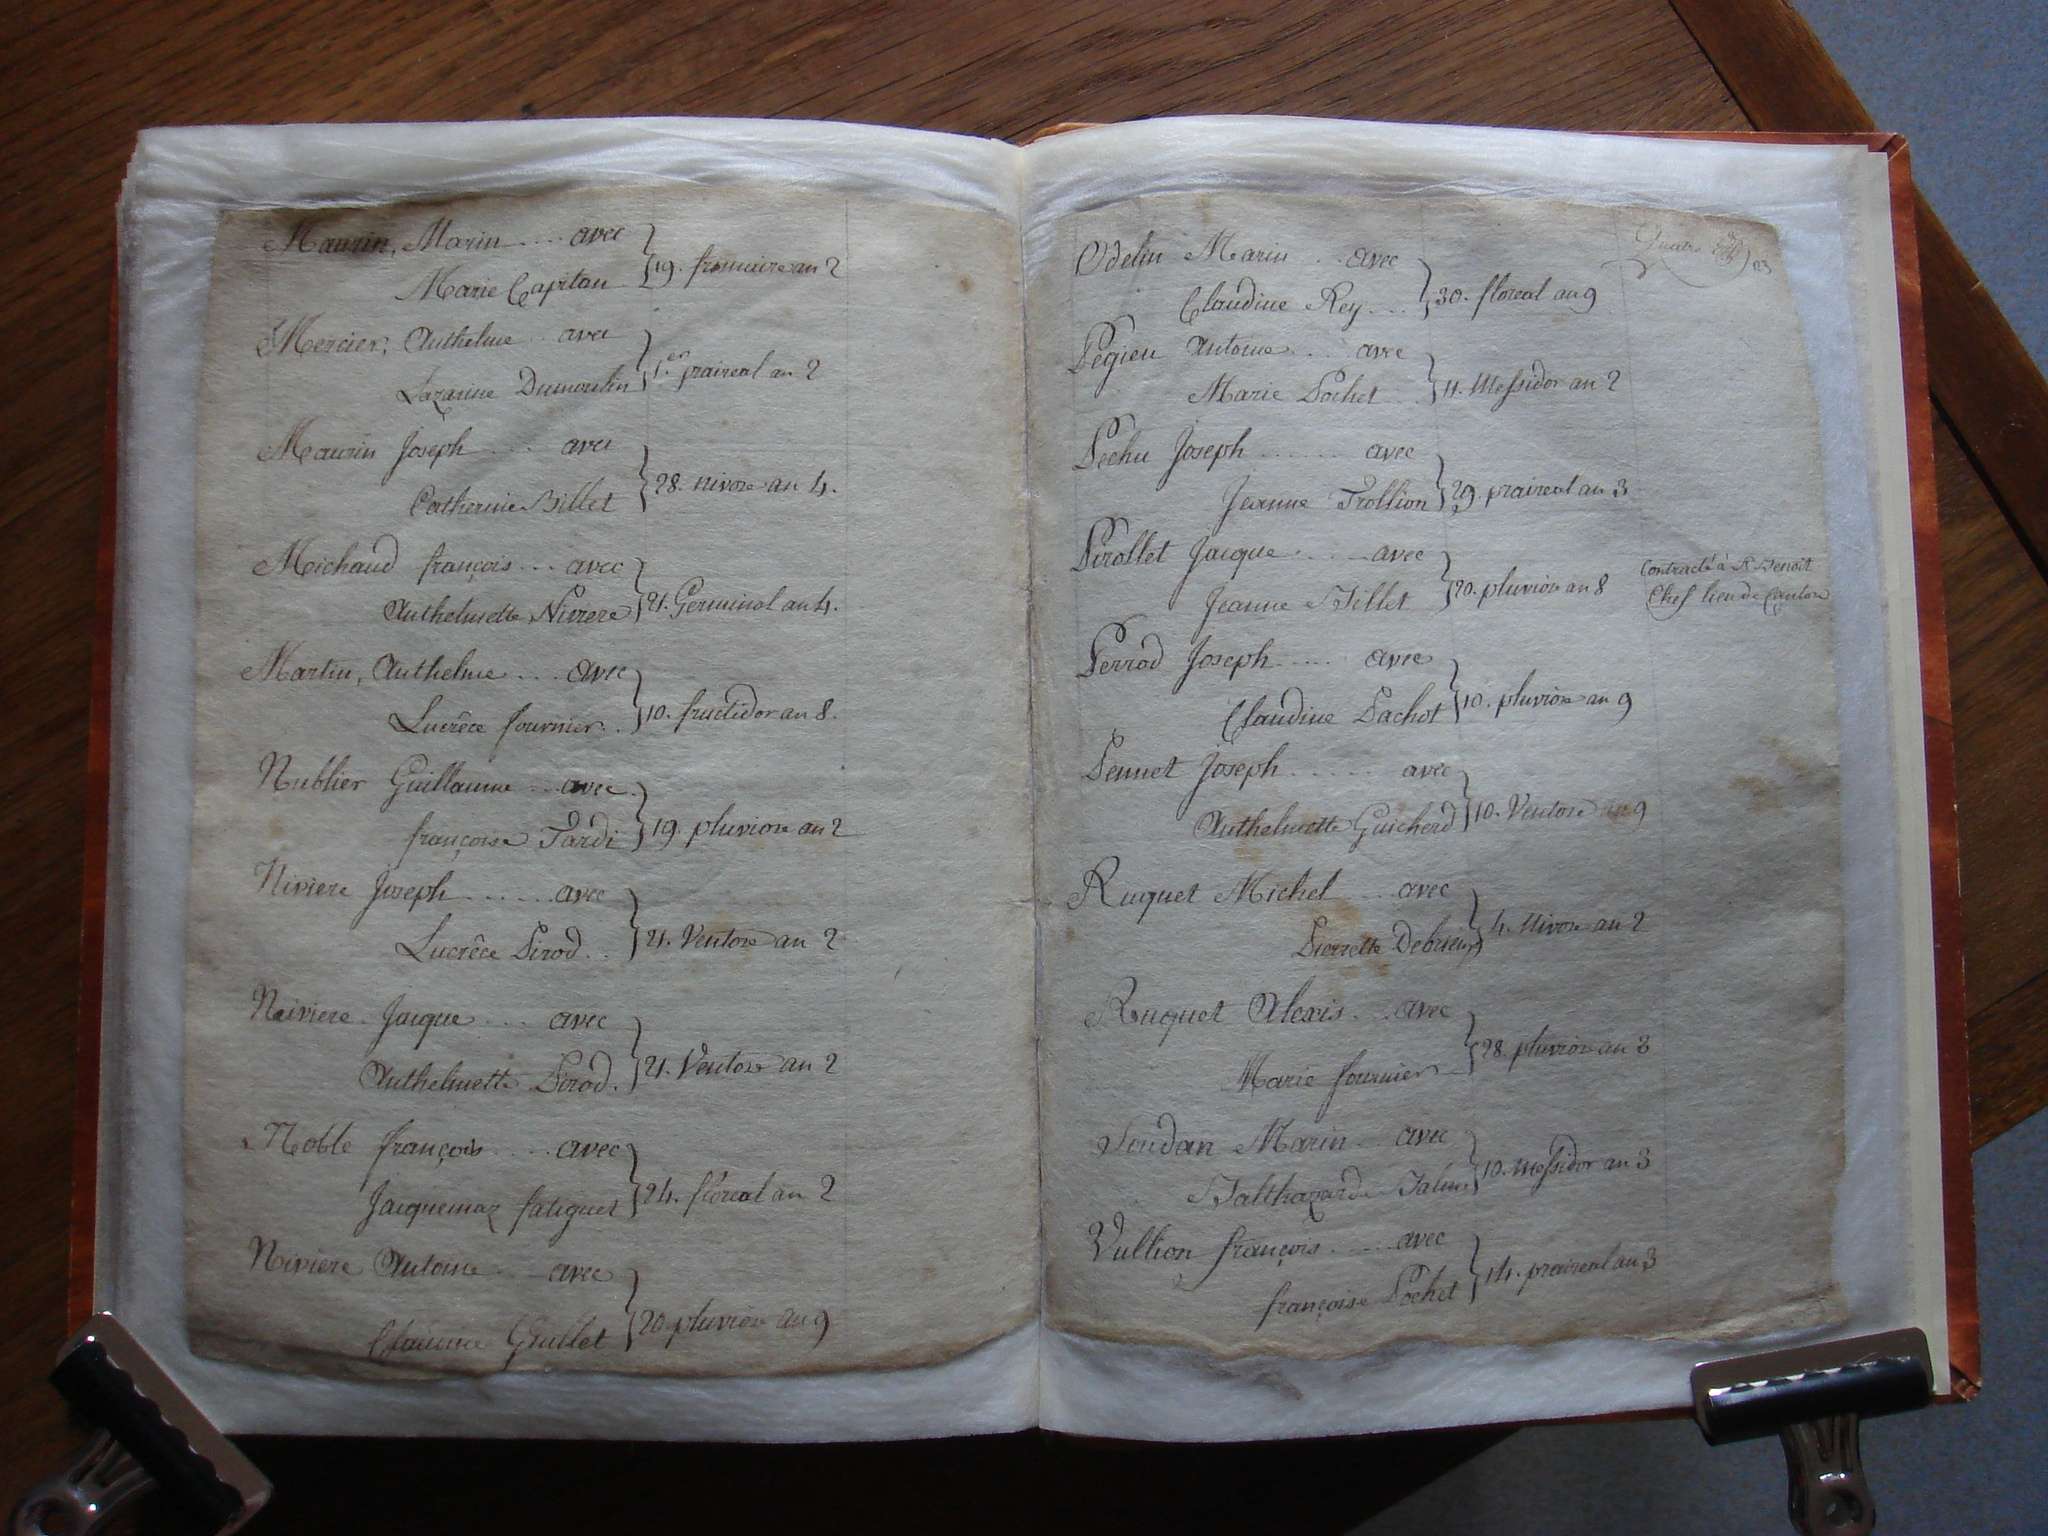 Maurin, Marin .... avec
Marie Capitan
19. frimaire an 2
Mercier, Anthelme .. avec
Suzanne Dumoulin
1.er praireal an 2
Maurin Joseph .... avec
Catherine Billet
28. nivose an 4.
Michaud françois ... avec
Anthelmette Niviere
21. Germinal an 4.
Martin, Anthelme ... avec
Lucrêce fournier ..
10. fructidor an 8.
Nublier Guillaume ... avec.
françoise Tardi
19. pluviose an 2
Niviere Joseph ...... avec
Lucrêce Pirod ..
21. Ventose an 2
Niviere Jacque ... avec
Anthelmette Pirod.
21. Ventose an 2
Noble françois .... avec
Jacquemaz fatiguet
24. floreal an 2
Niviere Antoine ... avec
Grillet
20 pluviose an 9
Quatre 23
Odelin Marin .. avec
Claudine Rey ...
30. floreal an 9
Pegieu Antoine ... avec
Marie Pochet ..
11. Messidor an 2
Pechu Joseph ...... avec
Jeanne Trollion
29. praireal an 3
Pirollet Jacque .... avec
Jeanne Billet
20. pluviose an 8
Contracté à St Benoit
Chef lieu de Canton
Perrod Joseph .... avec
Claudine Pachot
10. pluviose an 9
Pennet Joseph ..... avec
Anthelmette Guicherd
10. Ventose an 9
Ruquet Michel ... avec
Pierrette
4. Nivose an 2
Ruquet Alexis ... avec
Marie fournier
28. pluviose an 2
Soudan Marin .. avec
Balthazarde
10. Messidor an 3
Vullion françois ..... avec
françoise Pochet
14. praireal an 3